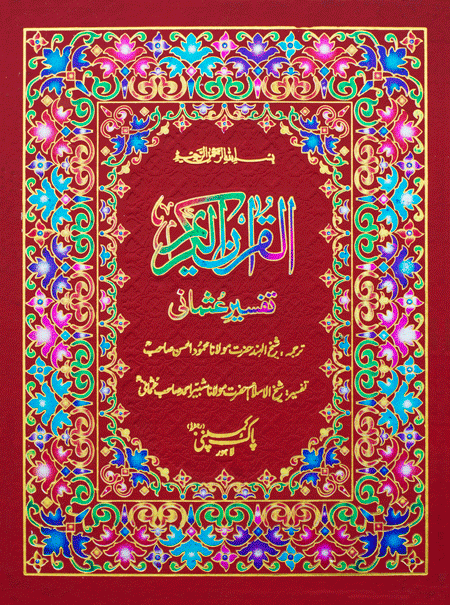 بسم الله الرحمن الرحیم
القرآن الکریم
تفسیر عثمانی
ترجمہ : شیخ الہند حضرت مولانا محمود الحسن صاحبؒ
تفسیر : شیخ الاسلام حضرت مولانا شبیر احمد صاحب عثمانیؒ
پاک کمپنی
لاہور